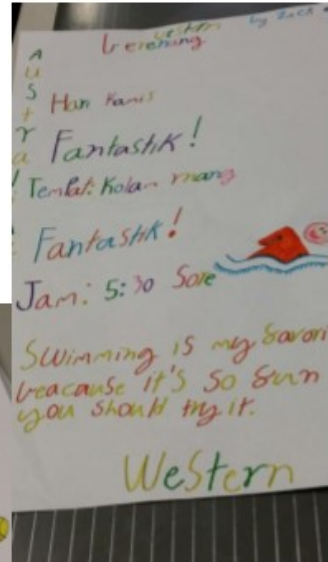 western by Zack
berenang
Austra
Hari Kamis
Fantastik!
Tempat: Kolam rnang
Fantastik!
Jam: 5:30 Sore
Swimming is my favori
beacause it's so fun
you should try it.
Western